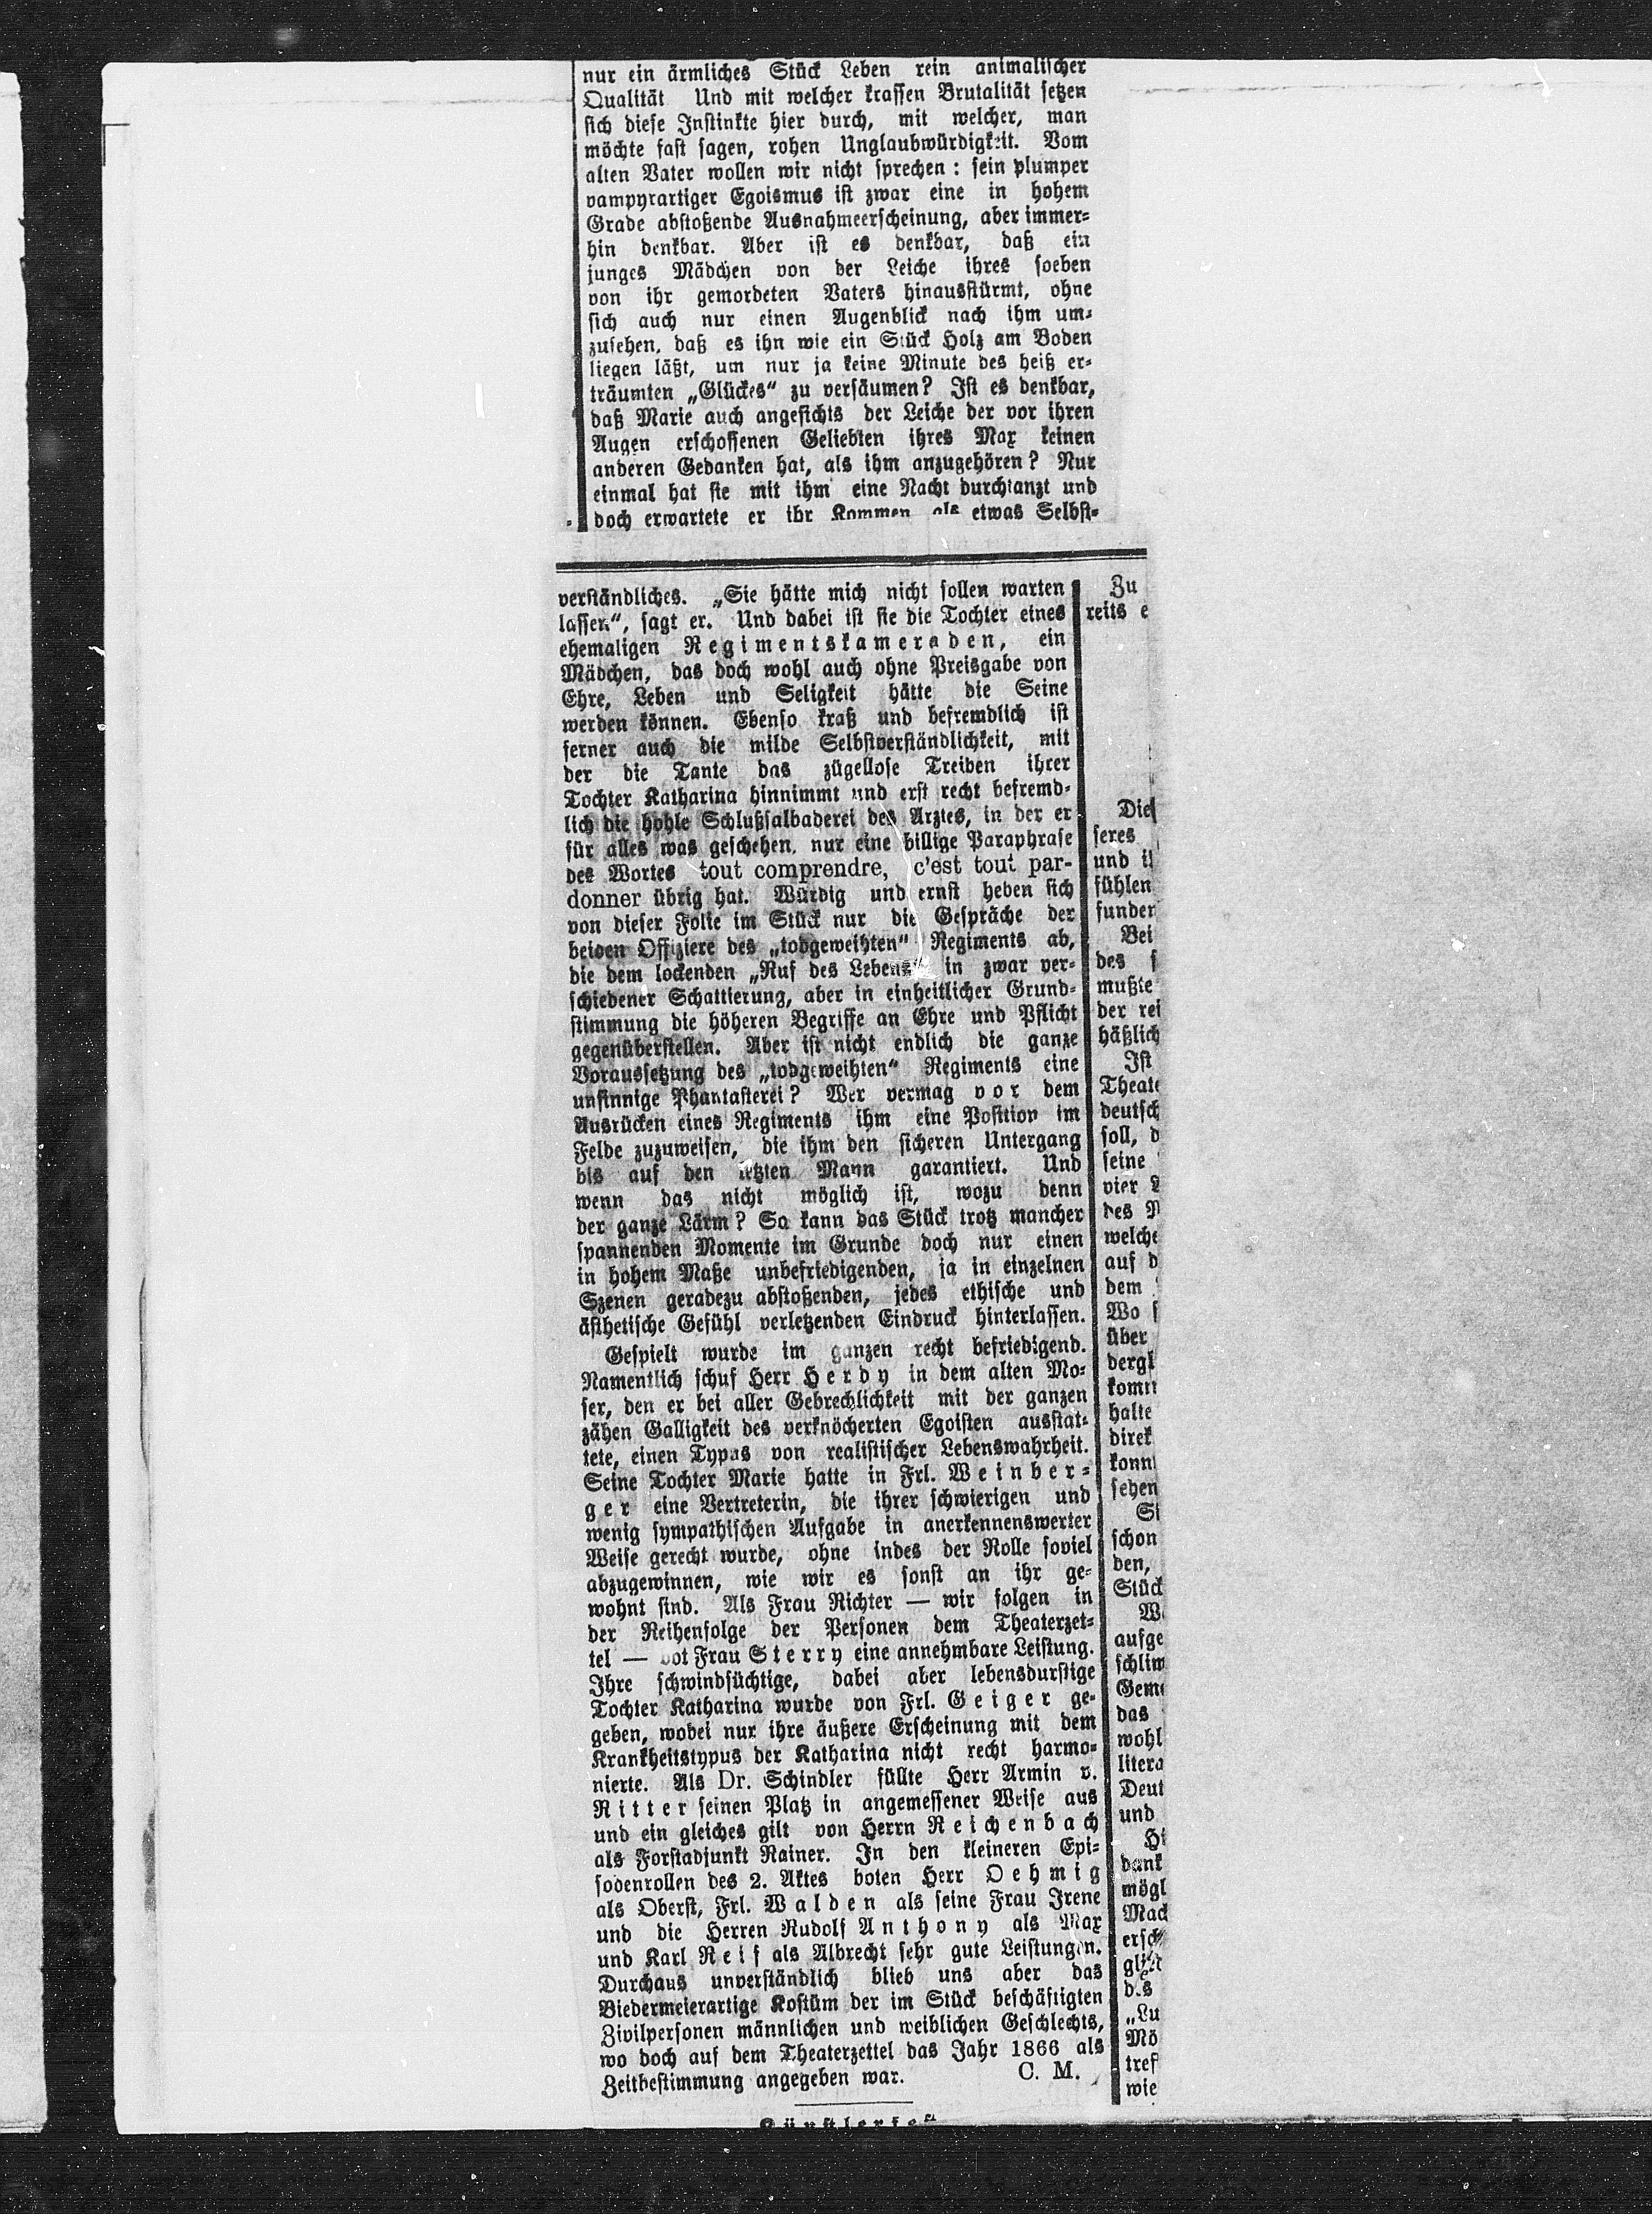 nur ein ärmliches Stück Leben rein animalischer
Qualität Und mit welcher krassen Brutalität setzen
sich diese Instinkte hier durch, mit welcher, man
möchte fast sagen, rohen Unglaubwürdigkeit. Vom
alten Vater wollen wir nicht sprechen: sein plumper
vampyrartiger Egoismus ist zwar eine in hohem
Grade abstoßende Ausnahmeerscheinung, aber immer-
hin denkbar. Aber ist es denkbar, daß ein
junges Mädchen von der Leiche ihres soeben
von ihr gemordeten Vaters hinausstürmt, ohne
sich auch nur einen Augenblick nach ihm um-
zusehen, daß es ihn wie ein Stück Holz am Boden
liegen läßt, um nur ja keine Minute des heiß er-
träumten „Glückes“ zu versäumen? Ist es denkbar,
daß Marie auch angesichts der Leiche der vor ihren
Augen erschossenen Geliebten ihres Max keinen
anderen Gedanken hat, als ihm anzugehören? Nur
einmal hat sie mit ihm eine Nacht durchtanzt und
doch erwartete er ihr Kommen als etwas Selbst-
verständliches. „Sie hätte mich nicht sollen warten
lassen“, sagt er. Und dabei ist sie die Tochter eines
ehemaligen Regimentskameraden, ein
Mädchen, das doch wohl auch ohne Preisgabe von
Ehre, Leben und Seligkeit hätte die Seine
werden können. Ebenso kraß und befremdlich ist
ferner auch die milde Selbstverständlichkeit, mit
der die Tante das zügellose Treiben ihrer
Tochter Katharina hinnimmt und erst recht befremd-
lich die hohle Schlußsalbaderei des Arztes, in der er
für alles was geschehen, nur eine billige Paraphrase
des Wortes tout comprendre, c'est tout par-
donner übrig hat. Würdig und ernst heben sich
von dieser Folie im Stück nur die Gespräche der
beiden Offiziere des „todgeweihten“ Regiments ab,
die dem lockenden „Ruf des Lebens“ in zwar ver-
schiedener Schattierung, aber in einheitlicher Grund-
stimmung die höheren Begriffe an Ehre und Pflicht
gegenüberstellen. Aber ist nicht endlich die ganze
Voraussetzung des „todgeweihten“ Regiments eine
unsinnige Phantasterei? Wer vermag vor dem
Ausrücken eines Regiments ihm eine Position im
Felde zuzuweisen, die ihm den sicheren Untergang
bis auf den letzten Mann garantiert. Und
wenn das nicht möglich ist, wozu denn
der ganze Lärm? So kann das Stück trotz mancher
spannenden Momente im Grunde doch nur einen
in hohem Maße unbefriedigenden, ja in einzelnen
Szenen geradezu abstoßenden, jedes ethische und
ästhetische Gefühl verletzenden Eindruck hinterlassen.
Gespielt wurde im ganzen recht befriedigend.
Namentlich schuf Herr Herdy in dem alten Mo-
ser, den er bei aller Gebrechlichkeit mit der ganzen
zähen Galligkeit des verknöcherten Egoisten ausstat-
tete, einen Typus von realistischer Lebenswahrheit.
Seine Tochter Marie hatte in Frl. Weinber-
ger eine Vertreterin, die ihrer schwierigen und
wenig sympathischen Aufgabe in anerkennenswerter
Weise gerecht wurde, ohne indes der Rolle soviel
abzugewinnen, wie wir es sonst an ihr ge-
wohnt sind. Als Frau Richter — wir folgen in
der Reihenfolge der Personen dem Theaterzet-
tel — bot Frau Sterry eine annehmbare Leistung.
Ihre schwindsüchtige, dabei aber lebensdurstige
Tochter Katharina wurde von Frl. Geiger ge-
geben, wobei nur ihre äußere Erscheinung mit dem
Krankheitstypus der Katharina nicht recht harmo-
nierte. Als Dr. Schindler füllte Herr Armin v.
Ritter seinen Platz in angemessener Weise aus
und ein gleiches gilt von Herrn Reichenbach
als Forstadjunkt Rainer. In den kleineren Epi-
sodenrollen des 2. Aktes boten Herr Oehmig
als Oberst, Frl. Walden als seine Frau Irene
und die Herren Rudolf Anthony als Max
und Karl Reif als Albrecht sehr gute Leistungen.
Durchaus unverständlich blieb uns aber das
Biedermeierartige Kostüm der im Stück beschäftigten
Zivilpersonen männlichen und weiblichen Geschlechts,
wo doch auf dem Theaterzettel das Jahr 1866 als
Zeitbestimmung angegeben war. C. M.
Zu
reits e
seres
und
fühlen
Bei
des
mußte
der rei
häßlich
Ist
deutsch
soll, d
seine
vier
des
welche
auf d
dem
Wo
über
halte
sehen
schon
den,
Stück
aufge
das
wohl
litera
und
tref
wie